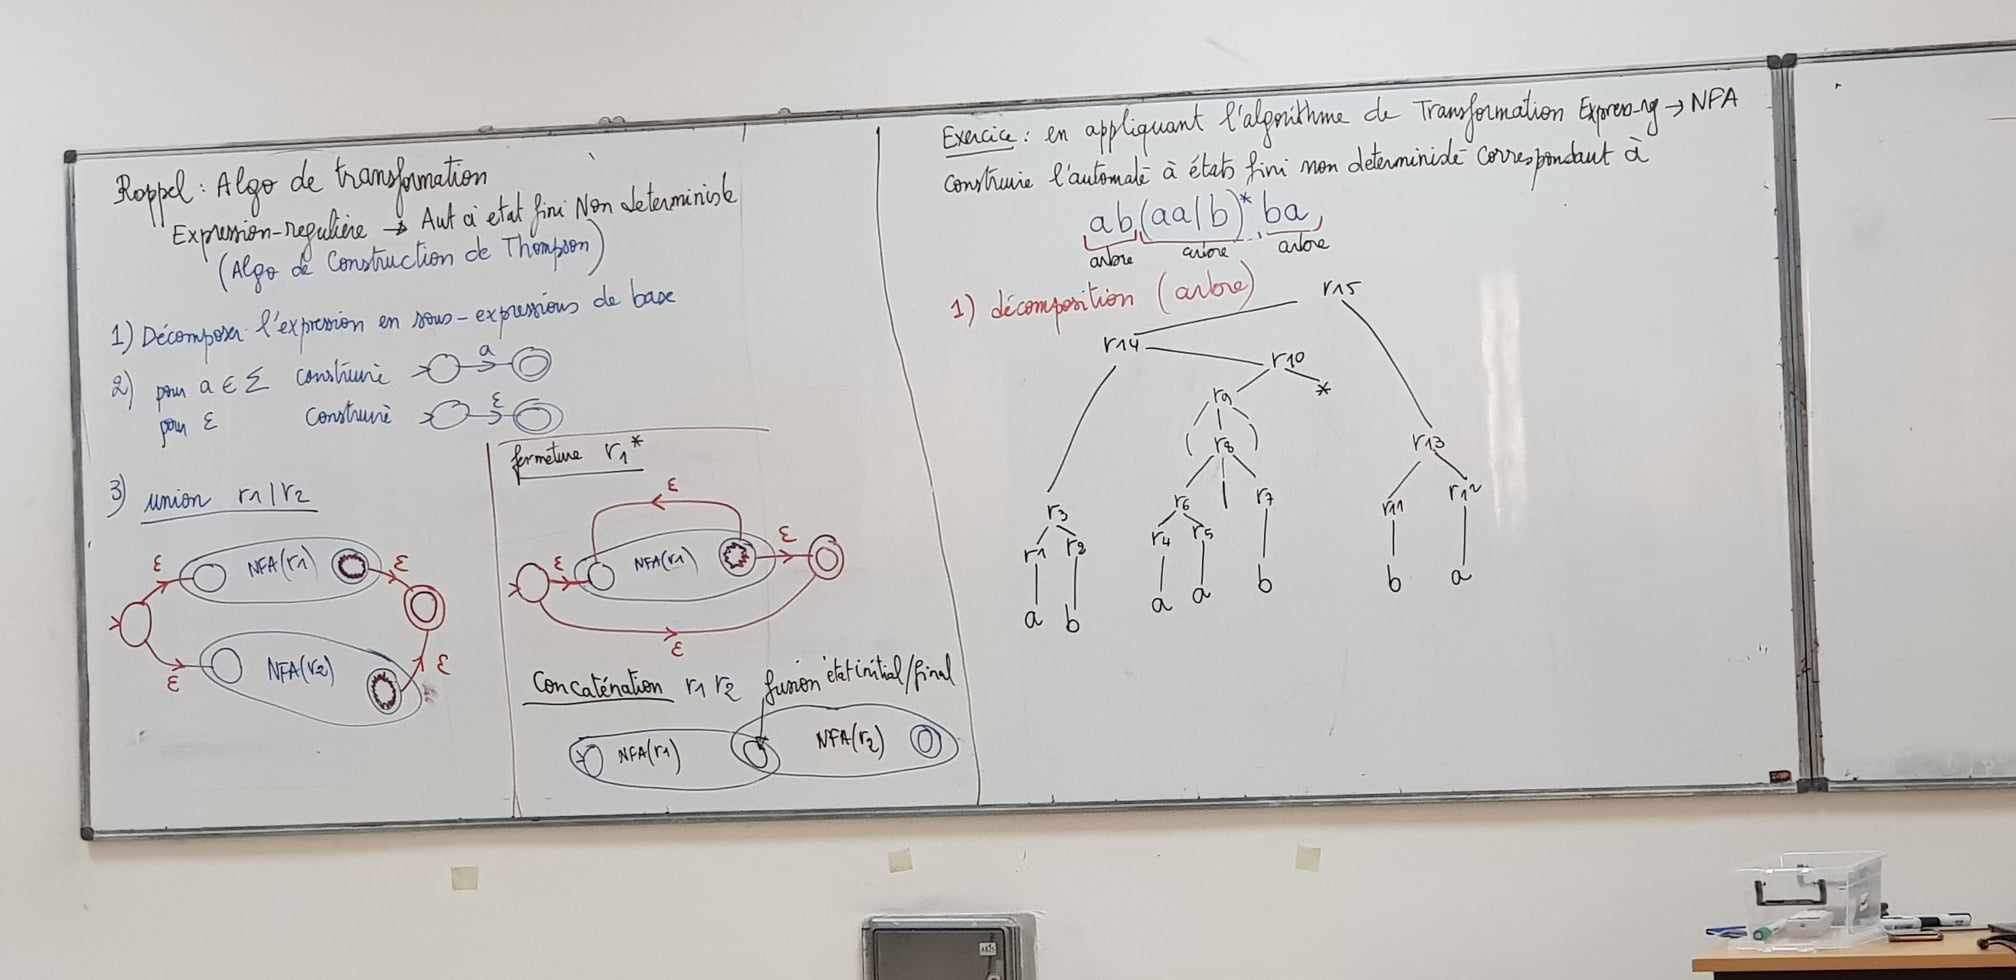 Rappel : Algo de transformation
Expression-regulière → Aut à etat fini Non deterministe
(Algo de Construction de Thompson)
1) Décomposer l'expression en sous-expressions de base
2) pour a ∈ Σ construire a
pour ε construire ε
3) union r1 | r2
ε NFA(r1) ε
ε NFA(r2) ε
fermeture r1*
ε
ε NFA(r1) ε
ε
Concaténation r1 r2 fusion état initial/final
NFA(r1) NFA(r2)
Exercice : en appliquant l'algorithme de Transformation Express-rg → NFA
construire l'automate à états fini non deterministe correspondant à
ab(aa|b)*ba
arbre arbre arbre
1) décomposition (arbre)
r15
r14 r10
r9 *
( r8 ) r13
r6 | r7 r11 r12
r3 r4 r5
r1 r2
a b a a b b a